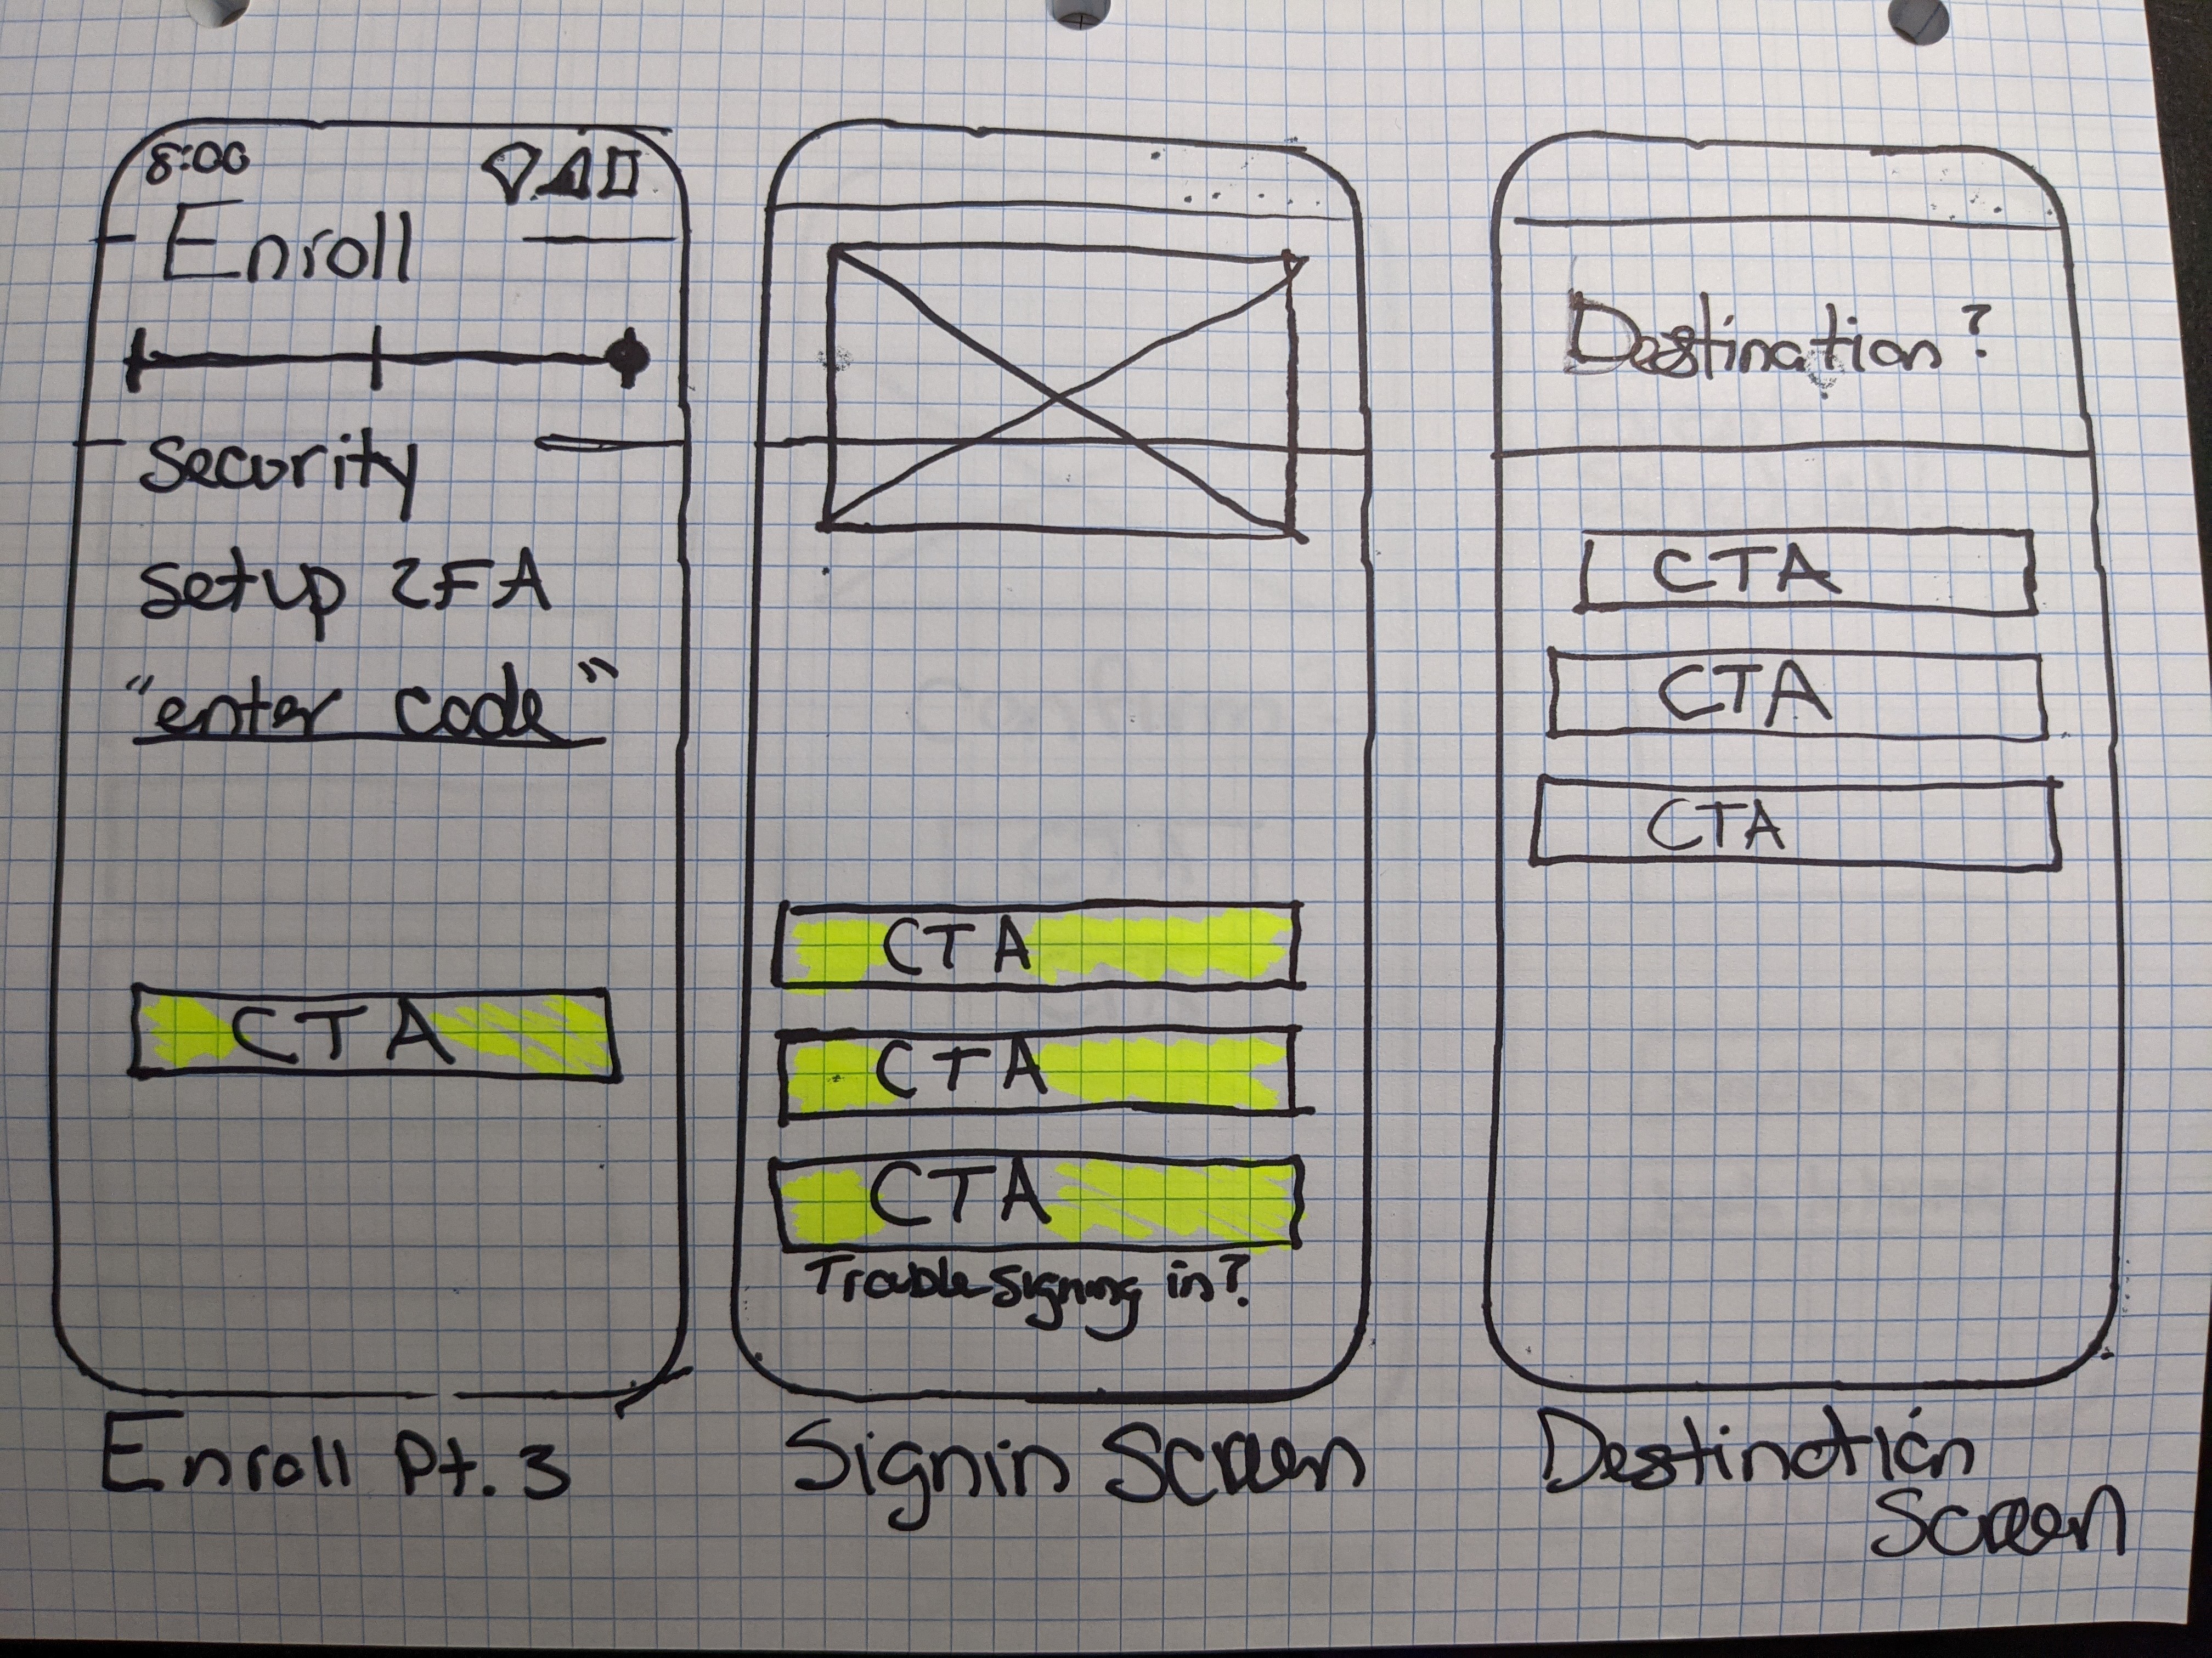 8:00
Enroll
security
setup 2FA
"enter code"
CTA
Enroll Pt. 3
CTA
CTA
CTA
Trouble signing in?
Signin Screen
Destination?
CTA
CTA
CTA
Destination
Screen